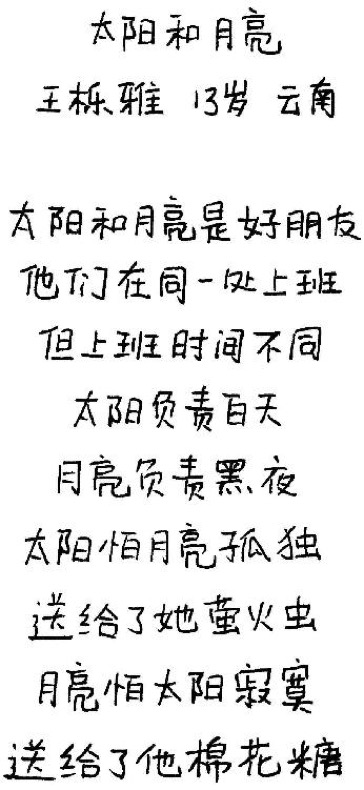 太阳和月亮
王栎雅 13岁 云南
太阳和月亮是好朋友
他们在同一处上班
但上班时间不同
太阳负责白天
月亮负责黑夜
太阳怕月亮孤独
送给了她萤火虫
月亮怕太阳寂寞
送给了他棉花糖